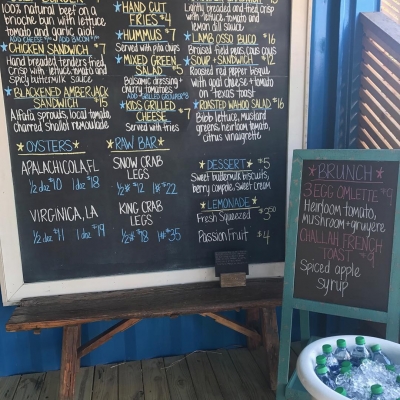 100% natural beef on a
brioche bun with lettuce
tomato and garlic aioli
ADD CHEESE ADD BACON
CHICKEN SANDWICH $7
Hand breaded tenders fried
crisp with lettuce, tomato and
spicy buttermilk sauce
BLACKENED AMBERJACK
SANDWICH $15
Alfafa sprouts, local tomato,
charred shallot remoulade
HAND CUT
FRIES $4
HUMMUS $7
Served with pita chips
MIXED GREEN
SALAD $5
Balsamic dressing +
cherry tomatoes
ADD GRILLED GROUPER
KIDS GRILLED
CHEESE $7
Served with fries
Lightly breaded and fried, crisp
with lettuce, tomato and
lemon dill sauce
LAMB OSSO BUCO $16
Braised field peas, cous cous
SOUP + SANDWICH $12
Roasted red pepper bisque
with goat cheese + tomato
on Texas toast
ROASTED WAHOO SALAD $16
Bibb lettuce, mustard
greens, heirloom tomato,
citrus vinaigrette
OYSTERS
APALACHICOLA, FL
1/2 doz $10 1 doz $18
VIRGINICA, LA
1/2 doz $11 1 doz $19
RAW BAR
SNOW CRAB
LEGS
1/2# $12 1# $22
KING CRAB
LEGS
1/2# $18 1# $35
DESSERT $5
Sweet buttermilk biscuits,
berry compote, sweet cream
LEMONADE
Fresh Squeezed $3.50
Passion Fruit $4
BRUNCH
3 EGG OMLETTE $9
Heirloom tomato,
mushroom + gruyere
CHALLAH FRENCH
TOAST $9
Spiced apple
syrup